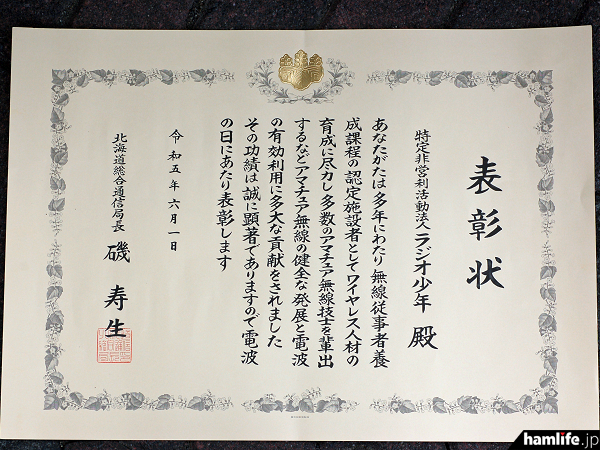 表彰状
特定非営利活動法人ラジオ少年 殿
あなたがたは多年にわたり無線従事者養
成課程の認定施設者としてワイヤレス人材の
育成に尽力し多数のアマチュア無線技士を輩出
するなどアマチュア無線の健全な発展と電波
の有効利用に多大な貢献をされました
その功績は誠に顕著でありますので電波
の日にあたり表彰します
令和五年六月一日
北海道総合通信局長 磯 寿生
hamlife.jp